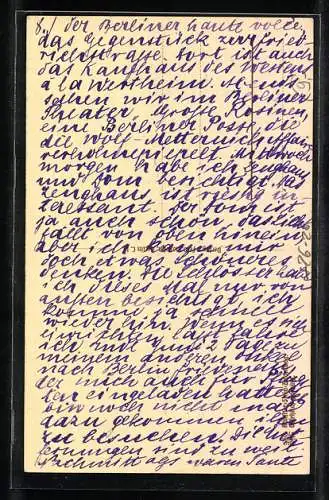 8./ der Berliner haute volee,
das Gegenstück zur Fried-
richstrasse. Dort ist auch
das Kaufhaus des Westens
à la Wertheim. Abends
sahen wir im Berliner
Theater „Grosse Rosinen"
eine Berliner Posse, die
die Wolf-Metternich Affäre
Mittwoch
morgen habe ich Zeughaus
und Dom besichtigt. Das
Zeughaus ist riesig in-
teressant. Der Dom ist
ja auch schön, das Licht
fällt von oben hinein,
aber ich kann mir
doch etwas schöneres
denken. Die Schlösser habe
ich dieses Mal nur von
aussen besichtigt, ich
komme ja schnell
wieder hin, denn es sind
ich und 2 Tagen
meinem anderen Onkel
nach Berlin Friedenau,
der mich auch für
ten eingeladen hatte,
bin noch nicht mal
dazu gekommen, ihn
zu besuchen. Die
fernungen sind zu weit.
Nachmittags waren Tante